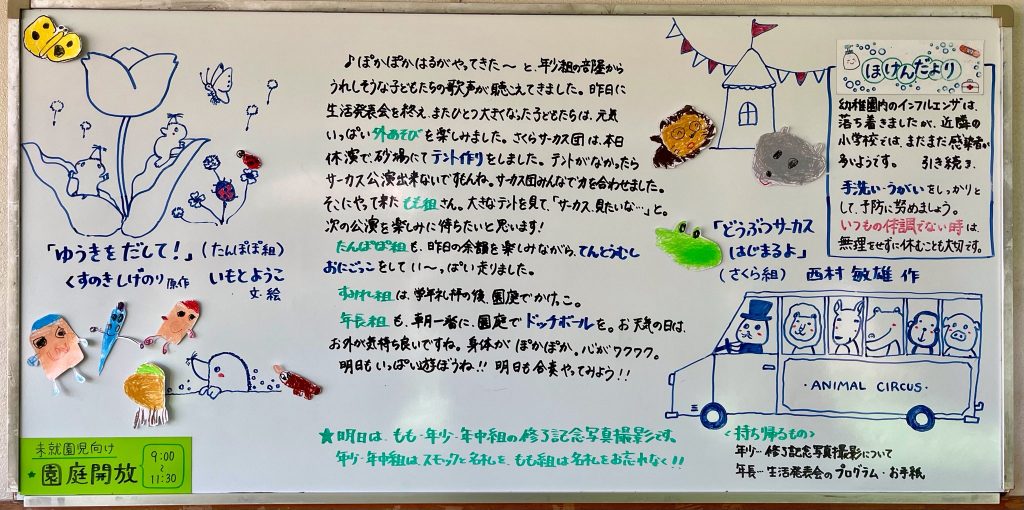 ♪ぽかぽかはるがやってきた〜 と、年少組の部屋から
うれしそうな子どもたちの歌声が聴こえてきました。昨日に
生活発表会を終え、またひとつ大きくなった子どもたちは、元気
いっぱい外あそびを楽しみました。さくらサーカス団は、本日
休演で、砂場にてテント作りをしました。テントがなかったら
サーカス公演出来ないですもんね。サーカス団みんなで力を合わせました。
そこにやって来たもも組さん。大きなテントを見て、「サーカス、見たいな…」と。
次の公演を楽しみに待ちたいと思います!
たんぽぽ組も、昨日の余韻を楽しみながら、てんとうむし
おにごっこをしてい〜っぱい走りました。
すみれ組は、学年礼拝の後、園庭でかけっこ。
年長組も、朝一番に、園庭でドッチボールを。お天気の日は、
お外が気持ち良いですね。身体がぽかぽか、心がワクワク。
明日もいっぱい遊ぼうね!! 明日も合奏やってみよう!!
★明日は、もも・年少・年中組の修了記念写真撮影です。
年少・年中組は、スモックと名札を、もも組は名札をお忘れなく!!
「ゆうきをだして!」(たんぽぽ組)
くすのきしげのり 原作 いもとようこ
文・絵
未就園児向け
★園庭開放
9:00
〜
11:30
ほけんだより
幼稚園内のインフルエンザは、
落ち着きましたが、近隣の
小学校では、まだまだ感染者が
多いようです。 引き続き、
手洗い・うがいをしっかりと
して、予防に努めましょう。
いつもの体調でない時は、
無理をせずに休むことも大切です。
「どうぶつサーカス
はじまるよ」
(さくら組) 西村 敏雄 作
・ANIMAL CIRCUS・
<持ち帰るもの>
年少…修了記念写真撮影について
年長…生活発表会のプログラム・お手紙